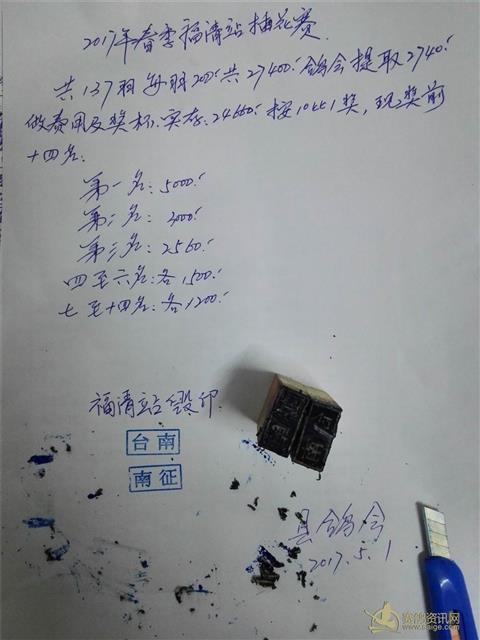 2017年春季福清站插花赛
共137羽每羽200.共27400.鸽会提取2740.
做费用及奖杯.实存:24660.按10取1奖,取奖前
十四名:
第一名:5000.
第二名:3000.
第三名:2560.
四至六名:各1500.
七至十四名:各1200.
福清站毁印
台南
南征
县鸽会
2017.5.1
赛鸽资讯网